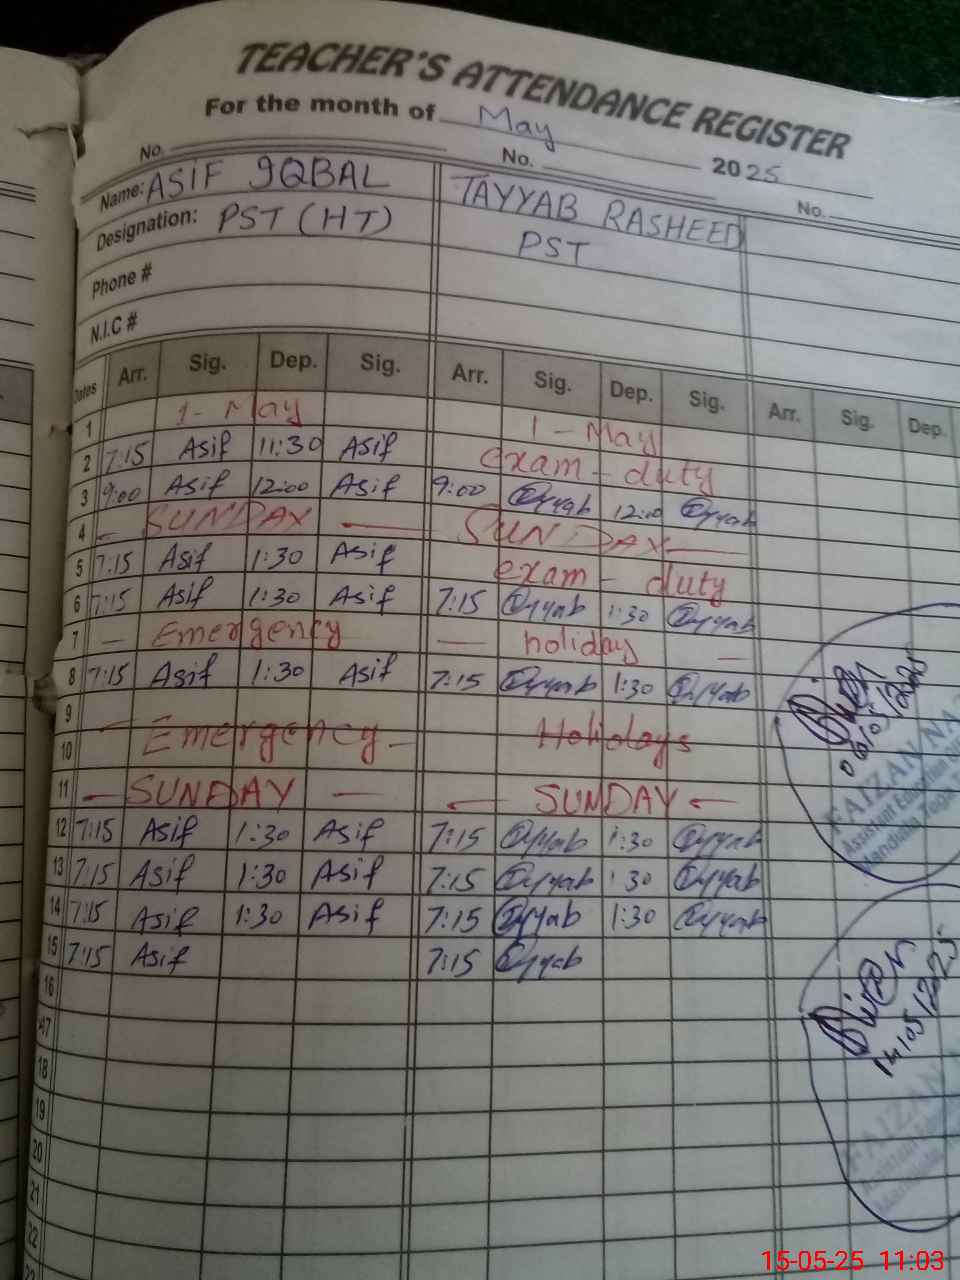 TEACHER'S ATTENDANCE REGISTER
For the month of May 2025
No. No. No.
Name: ASIF IQBAL TAYYAB RASHEED
Designation: PST (HT) PST
Phone #
N.I.C #
Dates Arr. Sig. Dep. Sig. Arr. Sig. Dep. Sig. Arr. Sig. Dep.
1 1 - May 1 - May
2 7:15 Asif 11:30 Asif exam - duty
3 9:00 Asif 12:00 Asif 9:00 Tayyab 12:00 Tayyab
4 SUNDAY SUNDAY
5 7:15 Asif 1:30 Asif exam - duty
6 7:15 Asif 1:30 Asif 7:15 Tayyab 1:30 Tayyab
7 Emergency holiday
8 7:15 Asif 1:30 Asif 7:15 Tayyab 1:30 Tayyab
9
10 Emergency Holidays
11 SUNDAY SUNDAY
12 7:15 Asif 1:30 Asif 7:15 Tayyab 1:30 Tayyab
13 7:15 Asif 1:30 Asif 7:15 Tayyab 1:30 Tayyab
14 7:15 Asif 1:30 Asif 7:15 Tayyab 1:30 Tayyab
15 7:15 Asif 7:15 Tayyab
16
17
18
19
20
21
22
06/05/2025
FAIZAN
Assistant Education
14/05/2025
FAIZAN
15-05-25 11:03